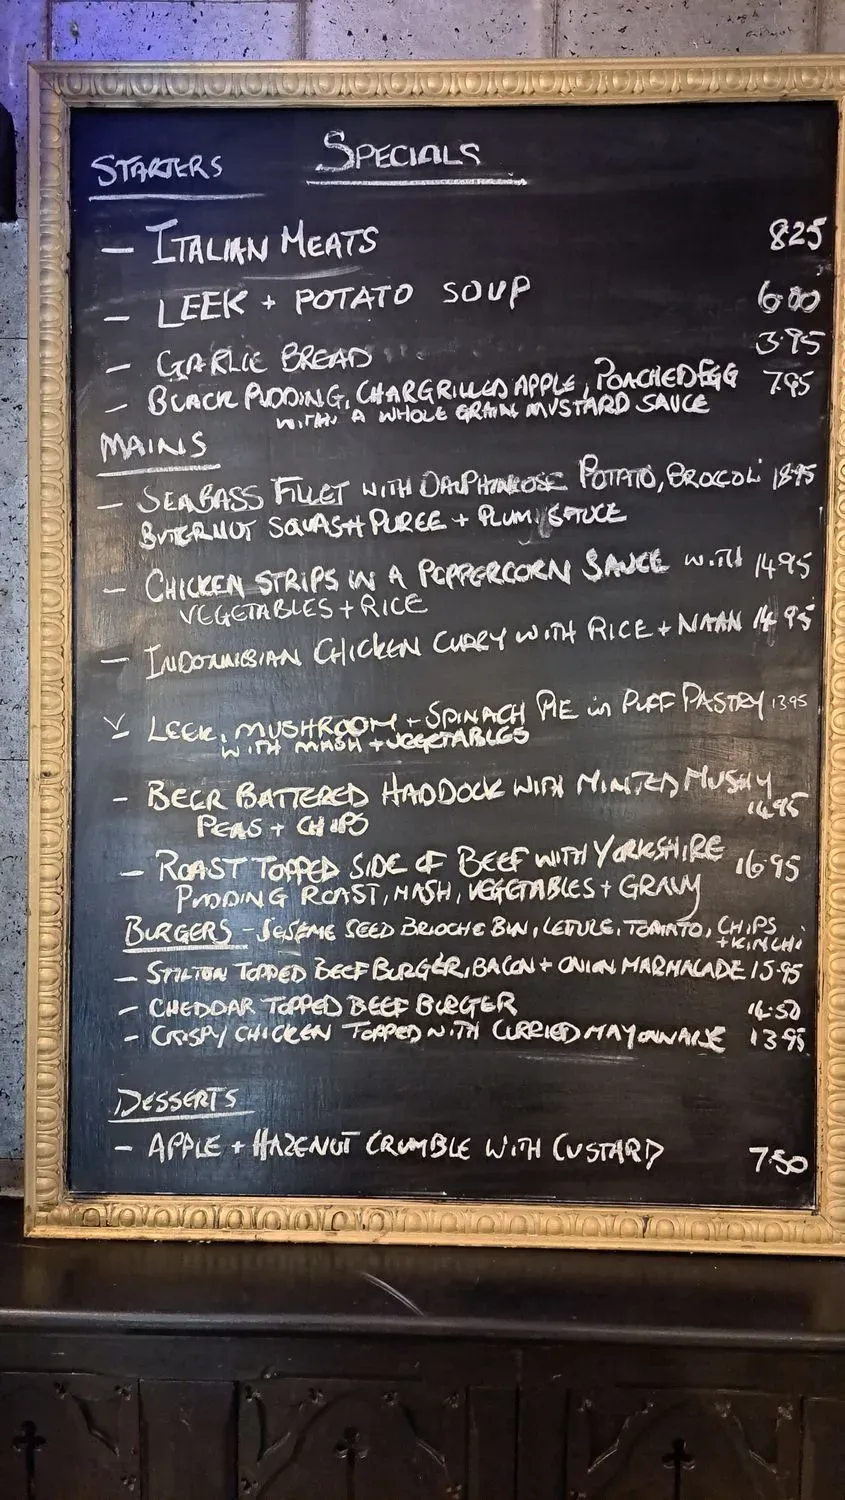 SPECIALS
STARTERS
- ITALIAN MEATS 8.25
- LEEK + POTATO SOUP 6.00
- GARLIC BREAD 3.95
- BLACK PUDDING, CHARGRILLED APPLE, POACHED EGG 7.95
WITH A WHOLE GRAIN MUSTARD SAUCE
MAINS
- SEABASS FILLET WITH DAUPHINOISE POTATO, BROCCOLI 18.95
BUTERNUT SQUASH PUREE + PLUM SAUCE
- CHICKEN STRIPS IN A PEPPERCORN SAUCE WITH 14.95
VEGETABLES + RICE
- INDONNESIAN CHICKEN CURRY WITH RICE + NAAN 14.95
V LEEK, MUSHROOM + SPINACH PIE in PUFF PASTRY 13.95
WITH MASH + VEGETABLES
- BEER BATTERED HADDOCK WITH MINTED MUSHY
PEAS + CHIPS 14.95
- ROAST TOPPED SIDE OF BEEF WITH YORKSHIRE 16.95
PUDDING ROAST, MASH, VEGETABLES + GRAVY
BURGERS - SESAME SEED BRIOCHE BUN, LETUCE, TOMATO, CHIPS
+ KIMCHI
- STILTON TOPPED BEEF BURGER, BACON + ONION MARMALADE 15.95
- CHEDDAR TOPPED BEEF BURGER 14.50
- CRISPY CHICKEN TOPPED WITH CURRIED MAYONNAISE 13.95
DESSERTS
- APPLE + HAZENUT CRUMBLE WITH CUSTARD 7.50